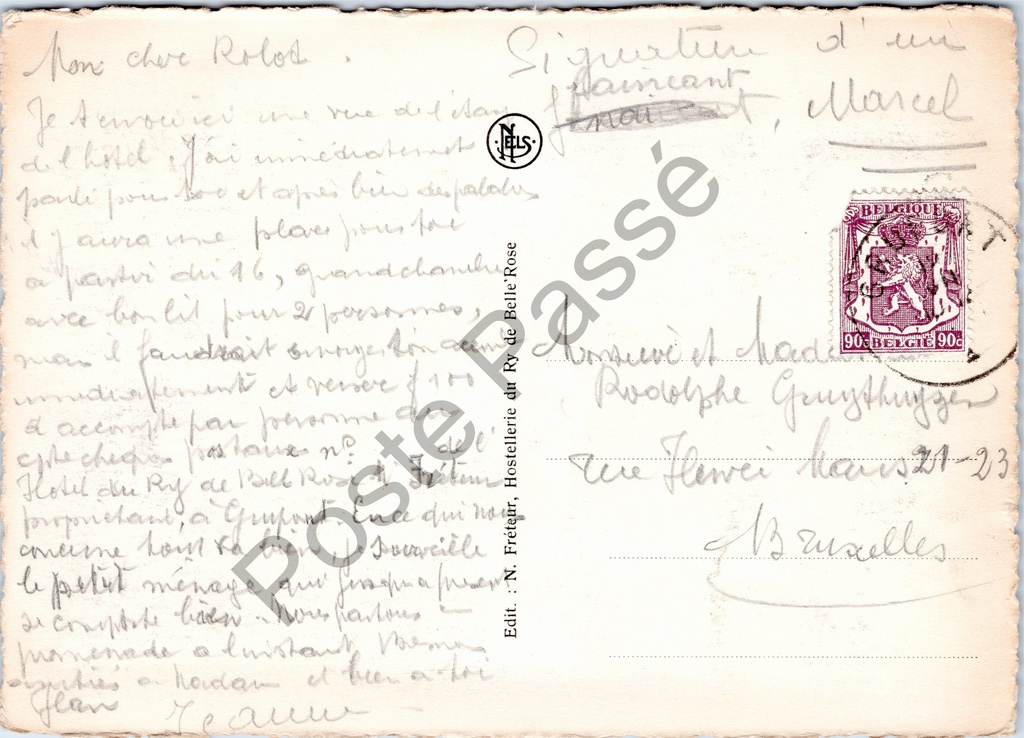 Mon cher Rolot.
Je t'envoie ici une vue de l'étang
de l'hotel. J'ai immédiatement
parlé pour toi et après bien des palabres
il y aura une place pour toi
a partir du 16, grand chambre
avec bon lit pour 2 personnes,
mais il faudrait envoyer ton accord
immédiatement et verser f 100
d'accompte par personne au
cpte cheques postaux n° de l'
Hotel du Ry de Bell Rose N. Fréteur
propriétaire, à Grupont. En ce qui nous
concerne tout va bien. Je surveille
le petit ménage qui jusqu'a present
se comporte bien. Nous partons en
promenade a l'instant.
amitiés a Madam et bien a toi
Jean Jeanne
Signature d'un
fainéant
Marcel
NELS
Edit. : N. Fréteur, Hostellerie du Ry de Belle'Rose
BELGIQUE
90c BELGIE 90c
Monsieur et Madame
Rodolphe Gruythuyzen
rue Henri Maus 21-23
Bruxelles
Poste Passé